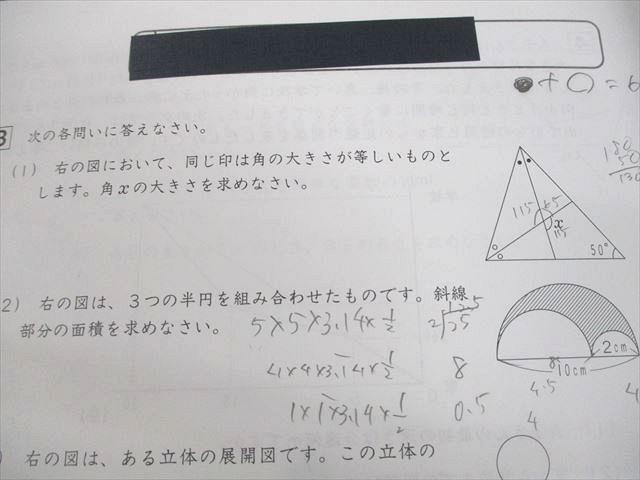 ●+○=6
3 次の各問いに答えなさい。
(1) 右の図において、同じ印は角の大きさが等しいものと
します。角xの大きさを求めなさい。
180
50
130
115 65
x
115
50°
2) 右の図は、3つの半円を組み合わせたものです。斜線
部分の面積を求めなさい。
5×5×3.14×1/2
12.5
2)25
4×4×3.14×1/2
8
1×1×3.14×1/2
0.5
2cm
8
10cm
4.5
4
4
右の図は、ある立体の展開図です。この立体の